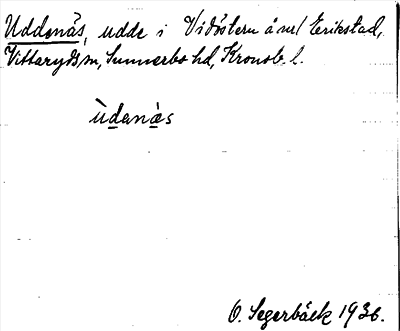 Uddenäs, udde i Vidöstern å m/ Erikstad,
Vittaryds sn, Sunnerbo hd, Kronob. l.
ùdenàs
O. Segerbäck 1936.